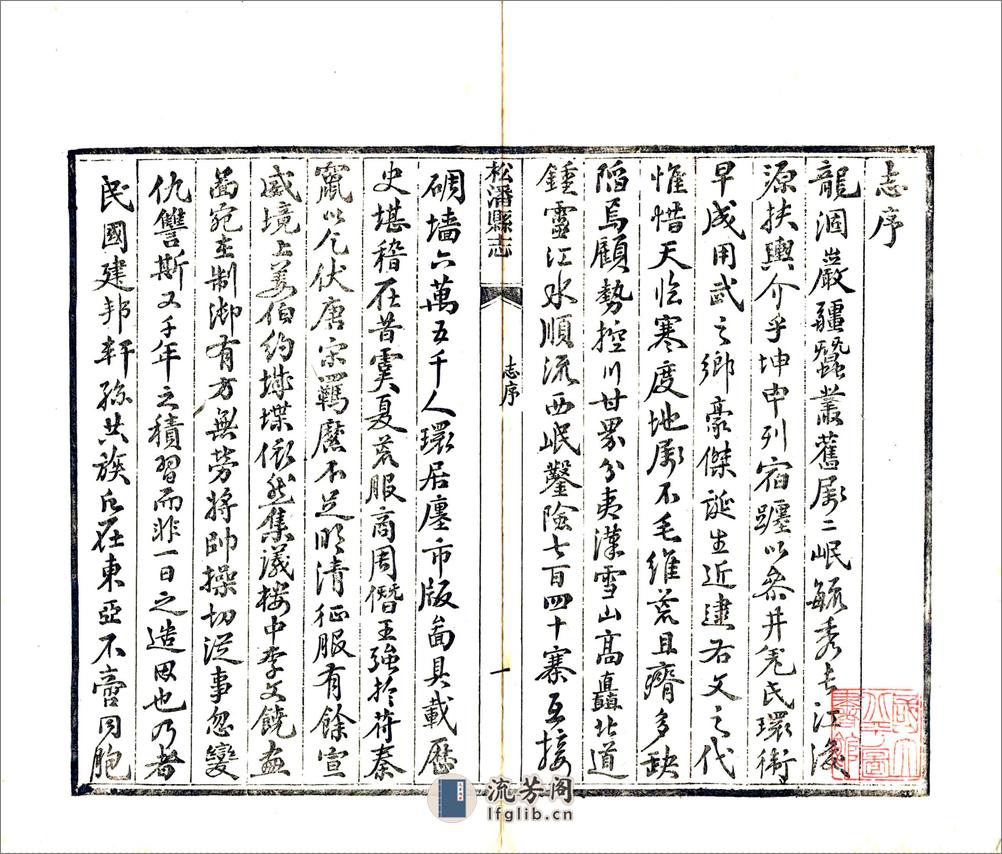 志序
龍涸嚴疆蠶叢舊屬二岷毓秀長江濬
源扶輿介乎坤申列宿躔以參井氐環衛
早成用武之鄉豪傑誕生近逮右文之代
惟惜天临寒度地屬不毛維荒且瘠多缺
陷焉顧勢控川甘界分夷漢雪山高矗北道
鍾靈江水順流西岷鑿險七百四十寨互接
松潘縣志
志序
一
碉墻六萬五千人環居廛市版圖具載歷
史堪稽在昔虞夏荒服商周僭王強於苻秦
竄以乞伏唐宋羈縻不足明清征服有餘宣
威境上姜伯約堞依然集議樓中李文饒画
啚宛在制御有方無勞將帥操切從事忽變
仇讐斯又千年之積習而非一日之造因也乃者
民國建邦軒孫共族氐在東亞不啻同胞
流芳阁
lfglib.cn